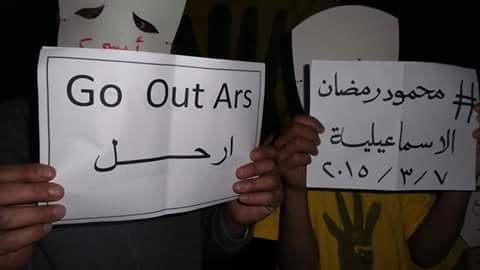 Go Out Ars
ارحــــــل
#محمود رمضان
الاسماعيلية
٢٠١٥/٣/٧